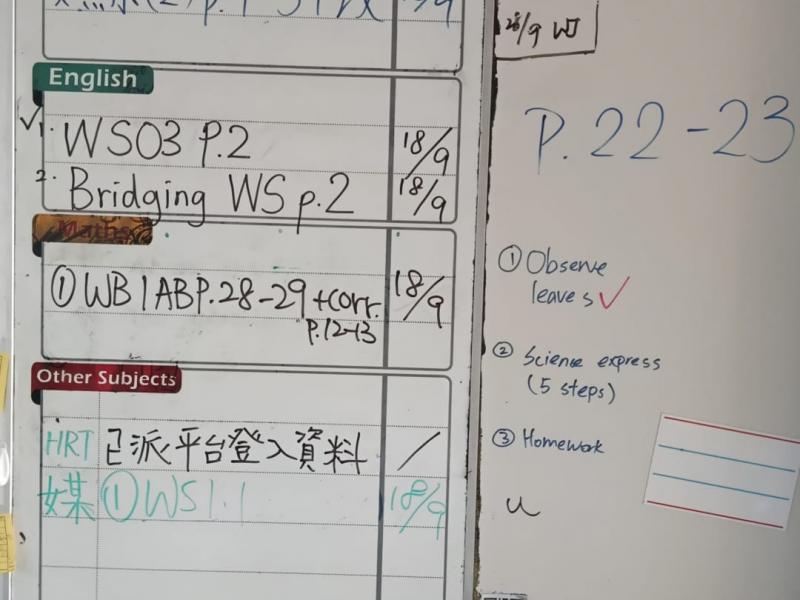 English
1. WS03 P.2 18/9
2. Bridging WS p.2 18/9
Maths
① WB 1AB P.28-29 +corr. 18/9
P.12-13
Other Subjects
HRT 已派平台登入資料 /
媒 ① WS1.1 18/9
P. 22-23
① Observe
leaves
② Science express
(5 steps)
③ Homework